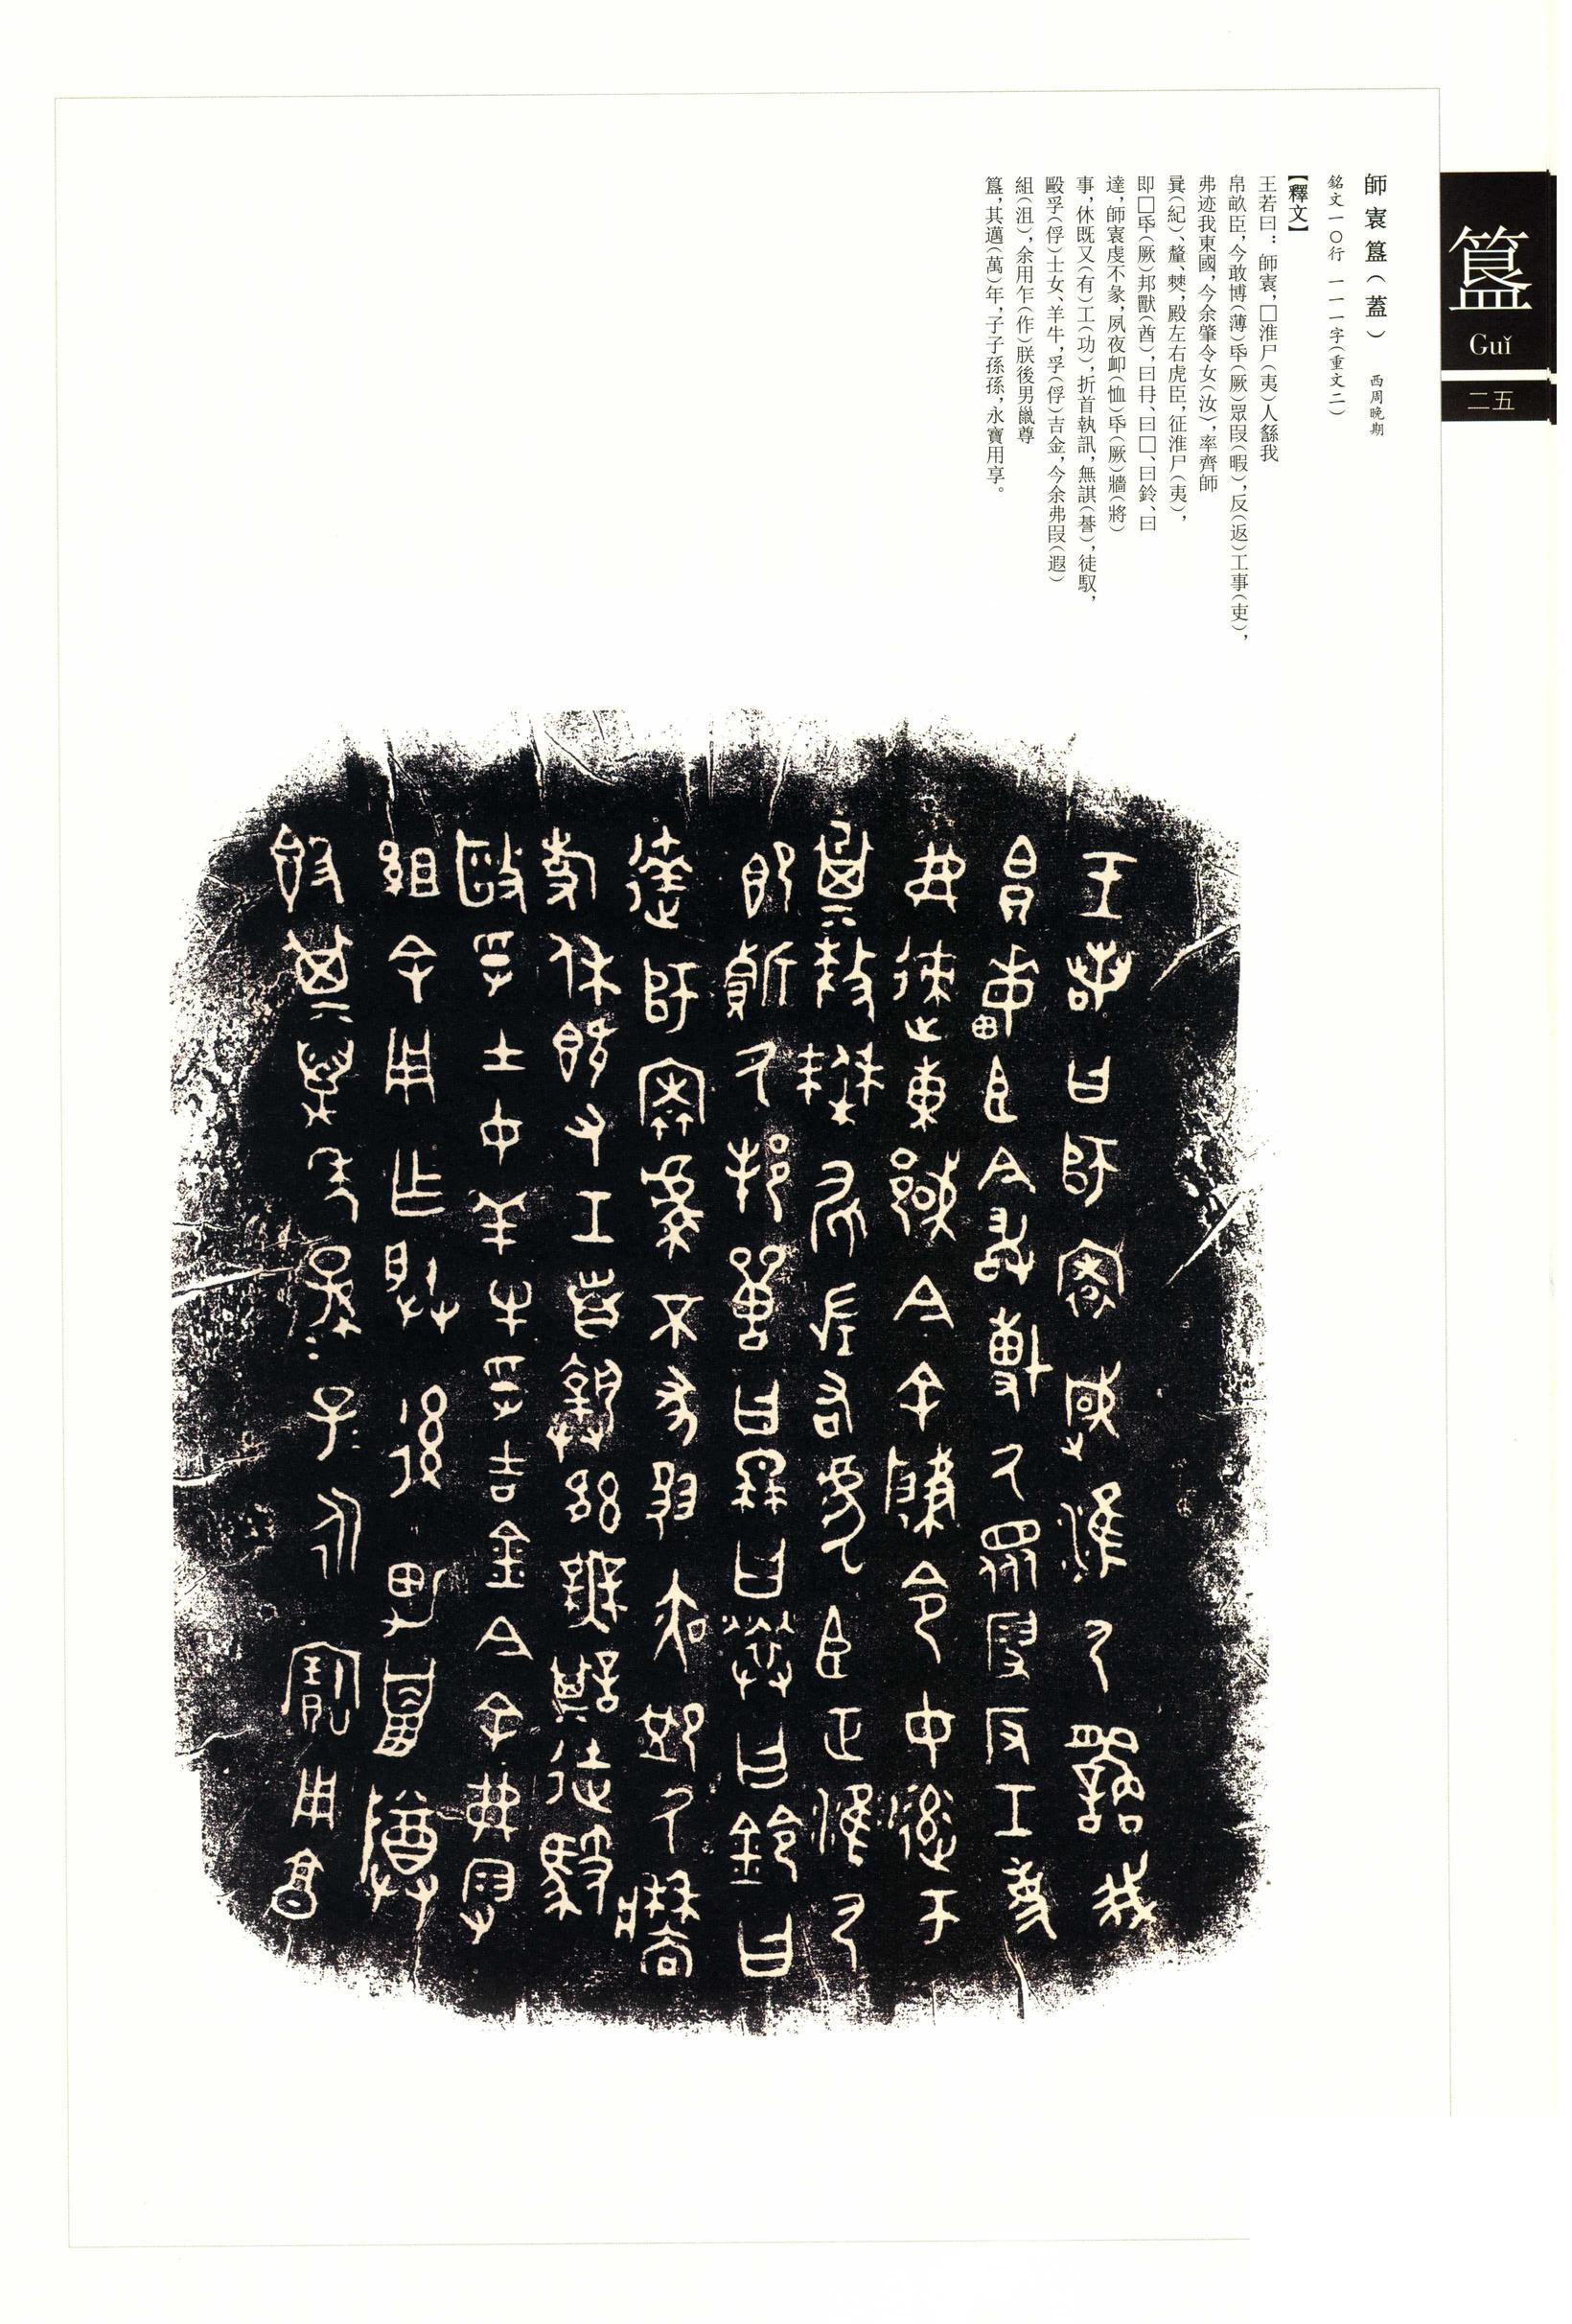 簋
Guǐ
二五
師㝨簋（蓋） 西周晚期
銘文一〇行 一一一字（重文二）
【釋文】
王若曰：師㝨，□淮尸（夷）人繇我
帛畝臣，今敢博（薄）氒（厥）眾叚（暇），反（返）工事（吏），
弗迹我東國，今余肇令女（汝），率齊師
㠱（紀）、釐、僰，殿左右虎臣，征淮尸（夷），
即□氒（厥）邦獸（酋），曰冉、曰□、曰鈴、曰
達，師㝨虔不彖，夙夜卹（恤）氒（厥）牆（將）
事，休既又（有）工（功），折首執訊，無諆（諅），徒馭，
毆孚（俘）士女、羊牛，孚（俘）吉金，今余弗叚（遐）
組（沮），余用乍（作）朕後男巤尊
簋，其邁（萬）年，子子孫孫，永寶用享。